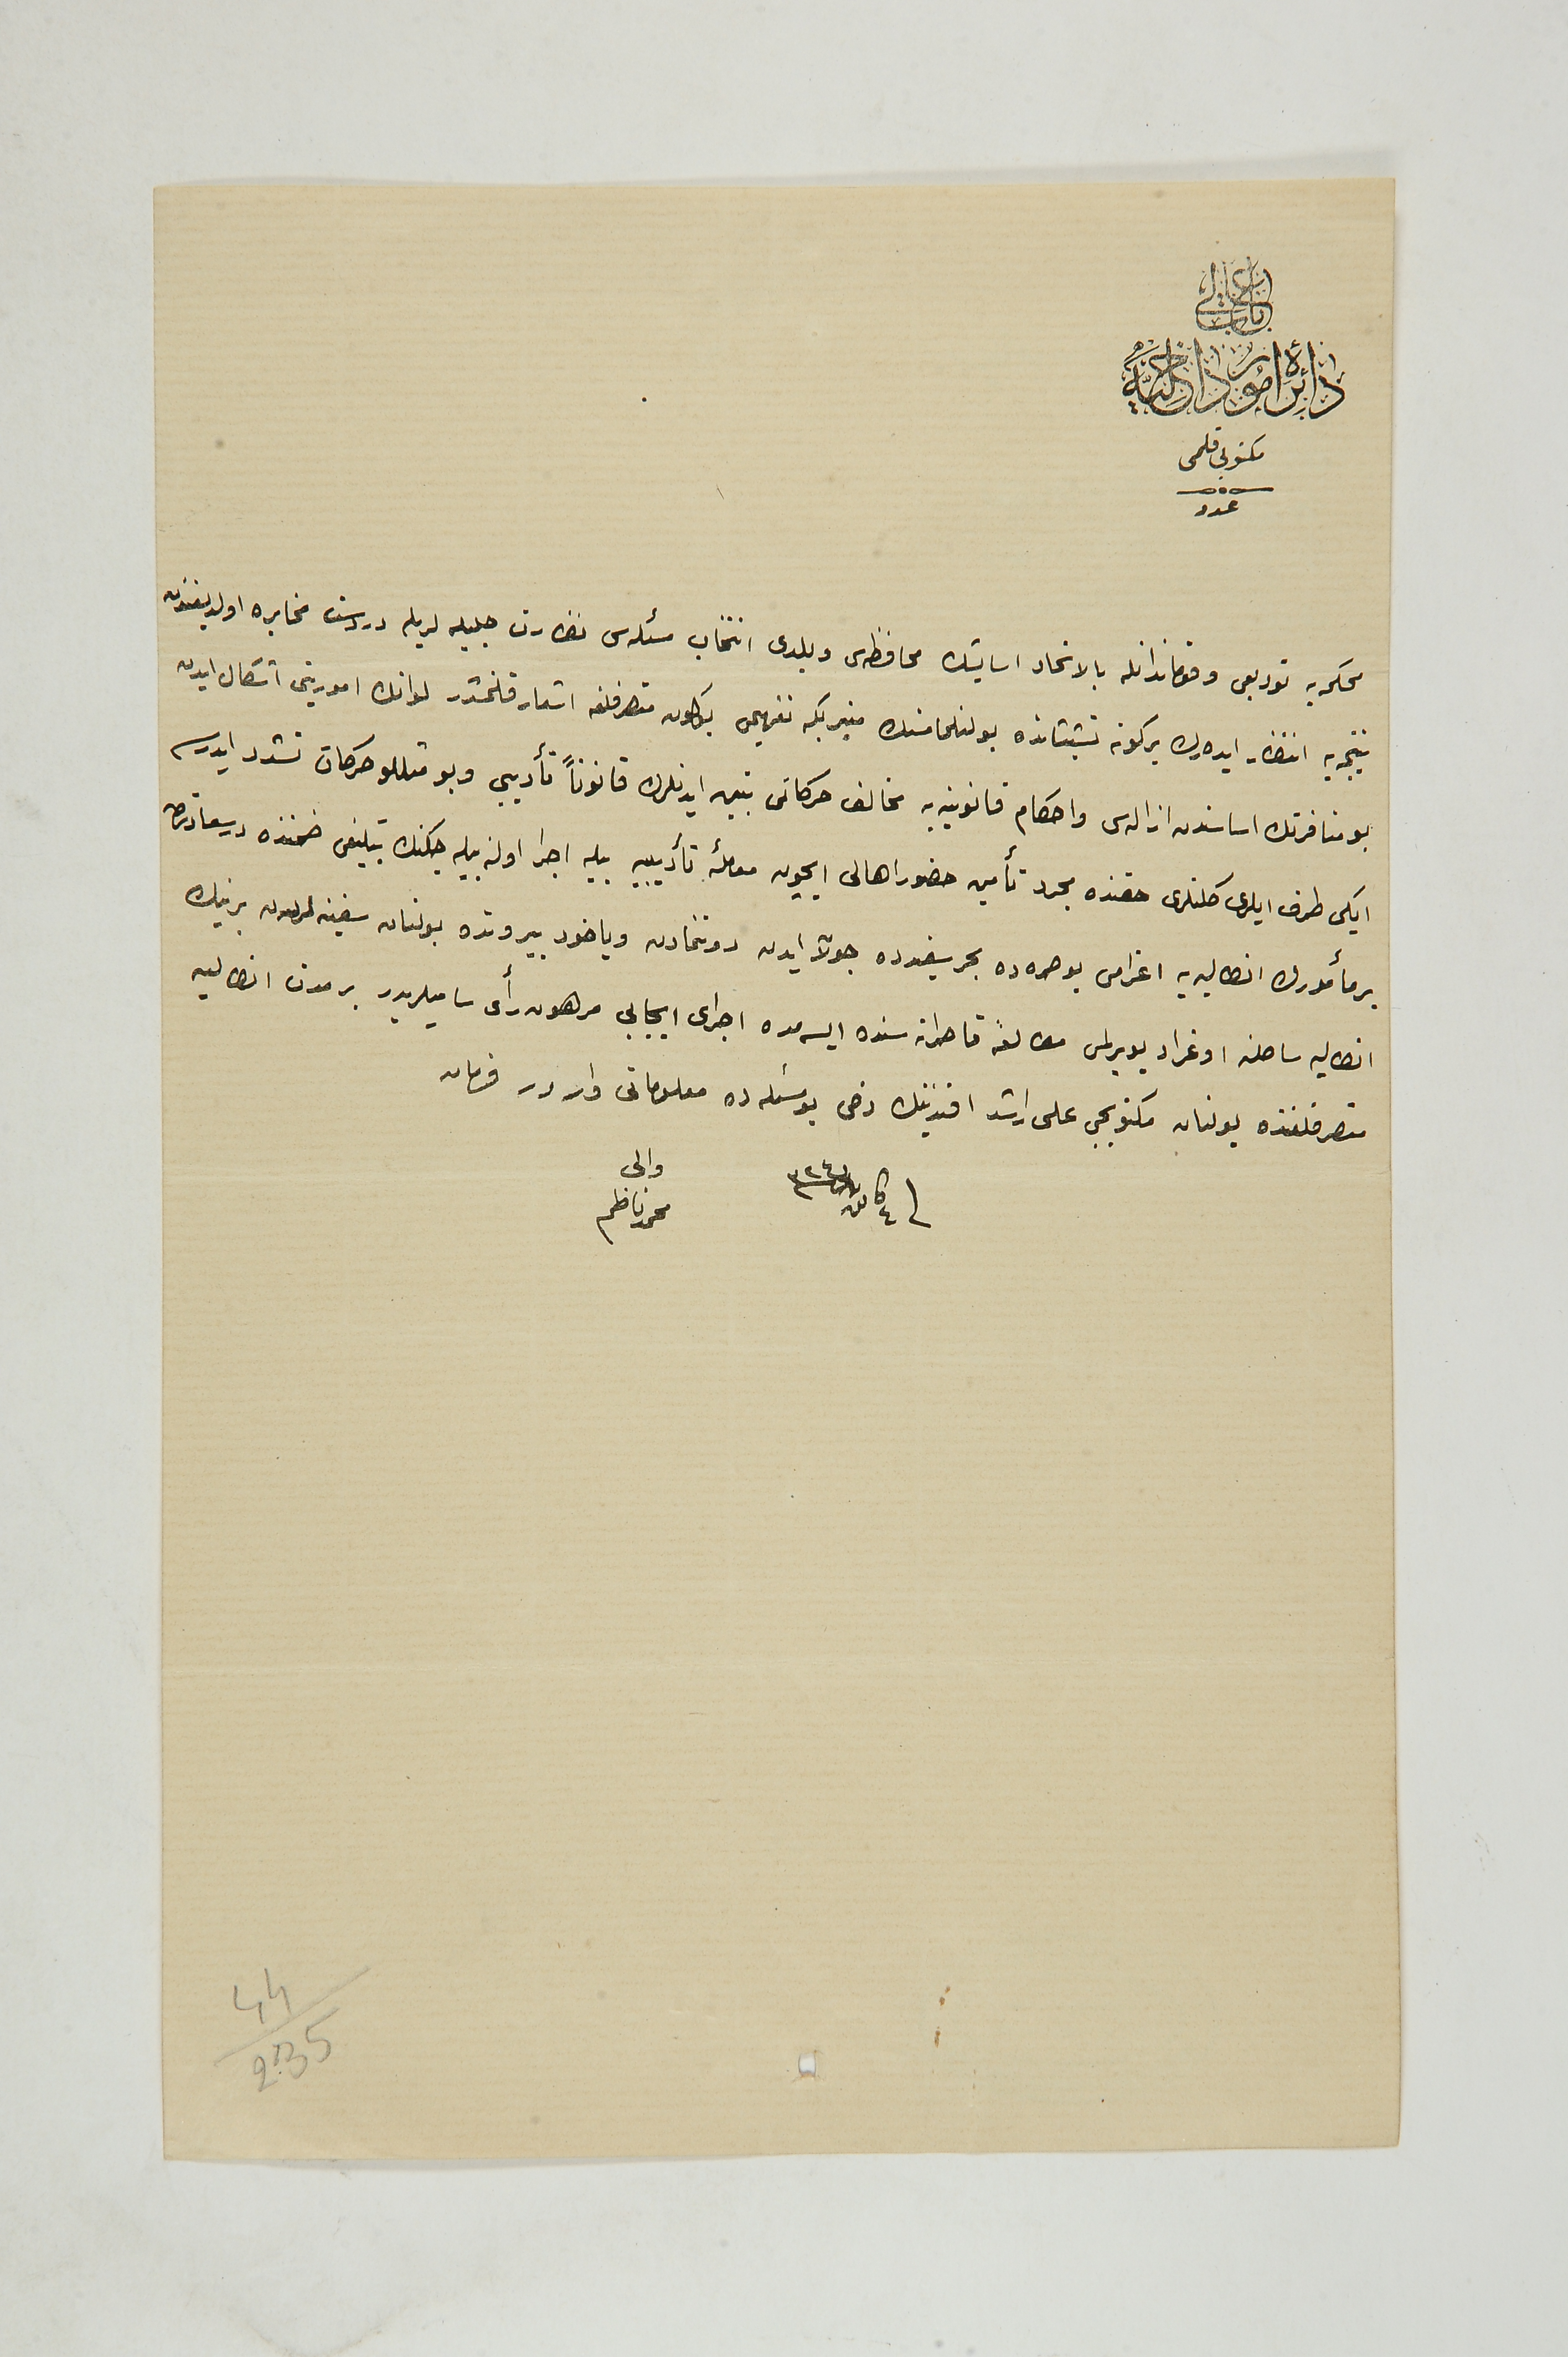 باب عالی
دائرهٔ امور داخلیه
مکتوبی قلمی
عدد
محکمه‌یه تودیعی و قوماندانله بالاتحاد اسایشك محافظه‌سی و بلدی انتخاب مسئله‌سی نظارت جلیله لریله دردست مخابره اولدیغندن
نتیجه‌یه انتظار ایده‌رك برکونه تشبثاتده بولنلمامسنك منیر بکه تفهیمی بوکون متصرفلغه اشعار قلنمشدر لوانك امورینی اشکال ایدن
بو منافرتك اساسندن ازاله‌سی و احکام قانونیه‌یه مخالف حرکاتی تبین ایدنلرك قانوناً تأدیبی و بو مثللو حرکات تشدد ایدرسه
ایکی طرف ایلری کلنلری حقنده مجرد تأمین حضور اهالی ایچون معاملهٔ تأدیبیه بیله اجرا اولنه بیله جکنك تبلیغی ضمننده درسعادتدن
بر مأمورك انطالیه‌یه اعزامی بو صره‌ده بحر سفیدده جولان ایدن دوننمادن ویاخود بیروتده بولنان سفینه لردن برینك
انطالیه ساحلنه اوغرادیلیویرلمسی مطالعهٔ قاصرانه‌سنده ایسه‌مده اجرای ایجابی مرهون رأی سامیلریدر بر مدت انطالیه
متصرفلغنده بولنان مکتوبجی علی راشد افندینك دخی بو مسئله‌ده معلوماتی واردر فرمان
فی ٤ کانون ٣٢٤
والی
محمد ناظم
44
235